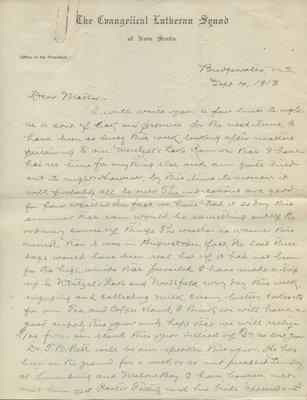 The Evangelical Lutheran Synod
of Nova Scotia.
Office of the President.
Bridgewater N.S.
Sept. 4, 1913.
Dear Mother:-
I will write you a few lines to-night
as a sort of and promise for the next time. I
have been so busy this week looking after matters
pertaining to our Lake Reunion that I have
had no time for anything else and am quite tired
out to-night. However by this time to-morrow it
will probably all be over. The indications are good
for fair weather. In fact we have had it so dry this
summer that rain would be something out of the
ordinary course of things. The weather is warmer this
month than it was in August. In fact the last three
days would have been real hot if it had not been
for the high winds that prevailed. I have made a trip
up to Lake and Northfield every day this week
engaging and collecting milk, cream, butter, cakes etc
for our Tea and Coffee stand. I think we will have a
good supply this year and hope that we will realize
100 from our stand this year instead of 50 as last year.
Dr. T. B. Roth will be our speaker this year. He has
been on the ground for a week or so and preached Sunday
at Lunenburg and Mahone Bay. I have however not
met him yet. Pastor and his bride appeared out